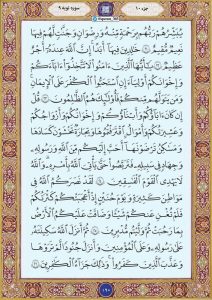 جزء ۱۰
سوره توبه ۹
يُبَشِّرُهُمْ رَبُّهُمْ بِرَحْمَةٍ مِنْهُ وَرِضْوَانٍ وَجَنَّاتٍ لَهُمْ فِيهَا
نَعِيمٌ مُقِيمٌ ۲۱ خَالِدِينَ فِيهَا أَبَدًا إِنَّ اللَّهَ عِنْدَهُ أَجْرٌ
عَظِيمٌ ۲۲ يَا أَيُّهَا الَّذِينَ آمَنُوا لَا تَتَّخِذُوا آبَاءَكُمْ
وَإِخْوَانَكُمْ أَوْلِيَاءَ إِنِ اسْتَحَبُّوا الْكُفْرَ عَلَى الْإِيمَانِ
وَمَنْ يَتَوَلَّهُمْ مِنْكُمْ فَأُولَٰئِكَ هُمُ الظَّالِمُونَ ۲۳ قُلْ إِنْ
كَانَ آبَاؤُكُمْ وَأَبْنَاؤُكُمْ وَإِخْوَانُكُمْ وَأَزْوَاجُكُمْ
وَعَشِيرَتُكُمْ وَأَمْوَالٌ اقْتَرَفْتُمُوهَا وَتِجَارَةٌ تَخْشَوْنَ كَسَادَهَا
وَمَسَاكِنُ تَرْضَوْنَهَا أَحَبَّ إِلَيْكُمْ مِنَ اللَّهِ وَرَسُولِهِ
وَجِهَادٍ فِي سَبِيلِهِ فَتَرَبَّصُوا حَتَّىٰ يَأْتِيَ اللَّهُ بِأَمْرِهِ وَاللَّهُ
لَا يَهْدِي الْقَوْمَ الْفَاسِقِينَ ۲۴ لَقَدْ نَصَرَكُمُ اللَّهُ فِي
مَوَاطِنَ كَثِيرَةٍ وَيَوْمَ حُنَيْنٍ إِذْ أَعْجَبَتْكُمْ كَثْرَتُكُمْ
فَلَمْ تُغْنِ عَنْكُمْ شَيْئًا وَضَاقَتْ عَلَيْكُمُ الْأَرْضُ
بِمَا رَحُبَتْ ثُمَّ وَلَّيْتُمْ مُدْبِرِينَ ۲۵ ثُمَّ أَنْزَلَ اللَّهُ سَكِينَتَهُ
عَلَىٰ رَسُولِهِ وَعَلَى الْمُؤْمِنِينَ وَأَنْزَلَ جُنُودًا لَمْ تَرَوْهَا
وَعَذَّبَ الَّذِينَ كَفَرُوا وَذَٰلِكَ جَزَاءُ الْكَافِرِينَ ۲۶
۱۹۰